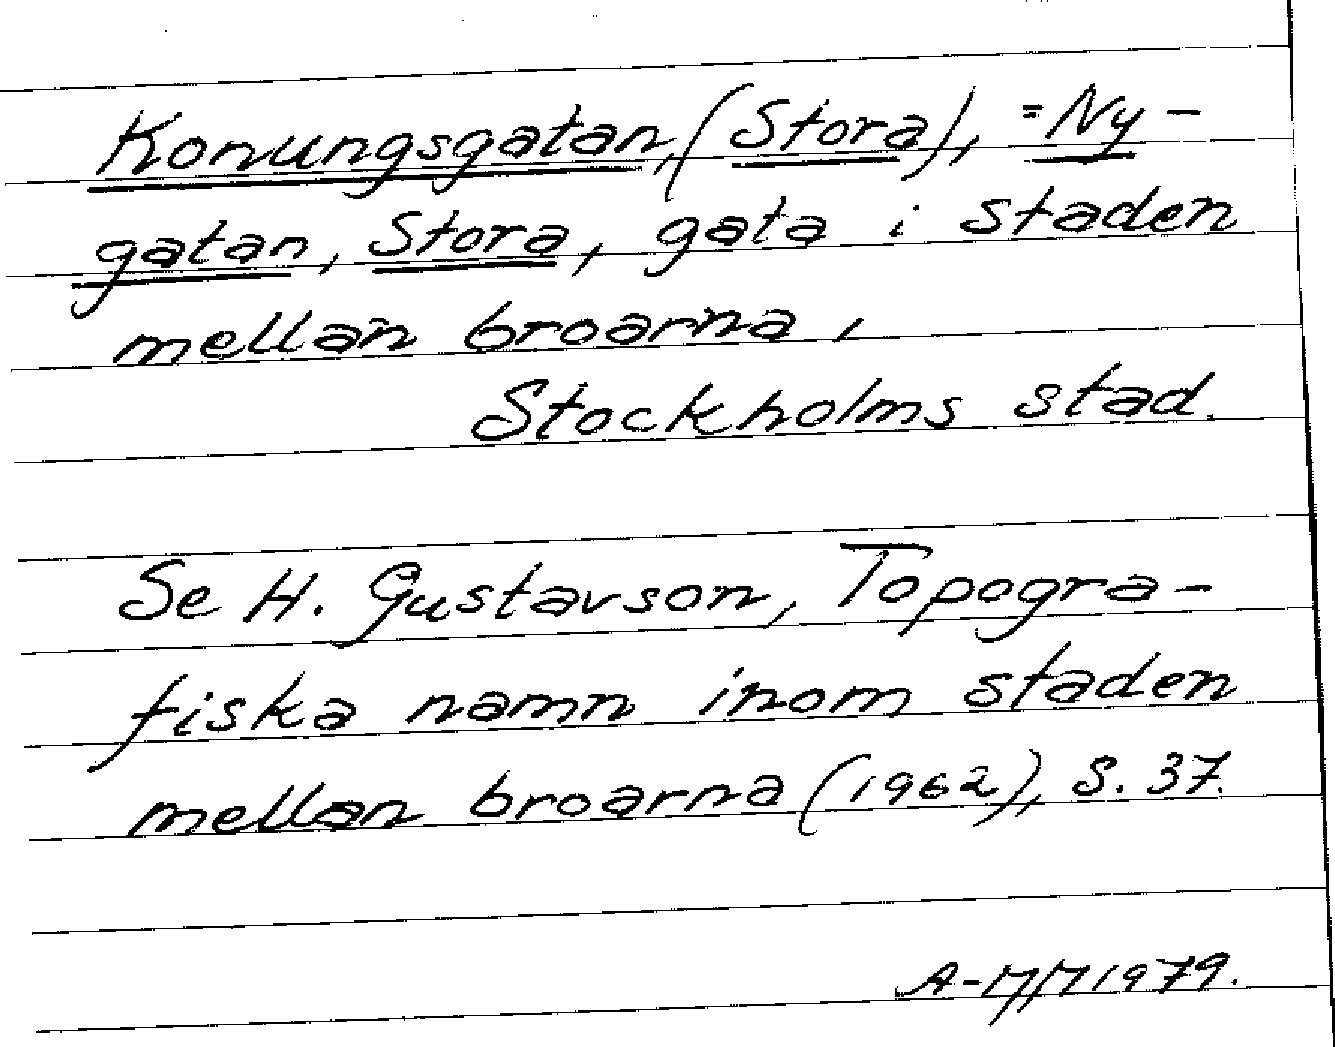 Konungsgatan, (Stora), = Ny-
gatan, Stora, gata i staden
mellan broarna,
Stockholms stad.
Se H. Gustavson, Topogra-
fiska namn inom staden
mellan broarna (1962), S. 37.
1979.